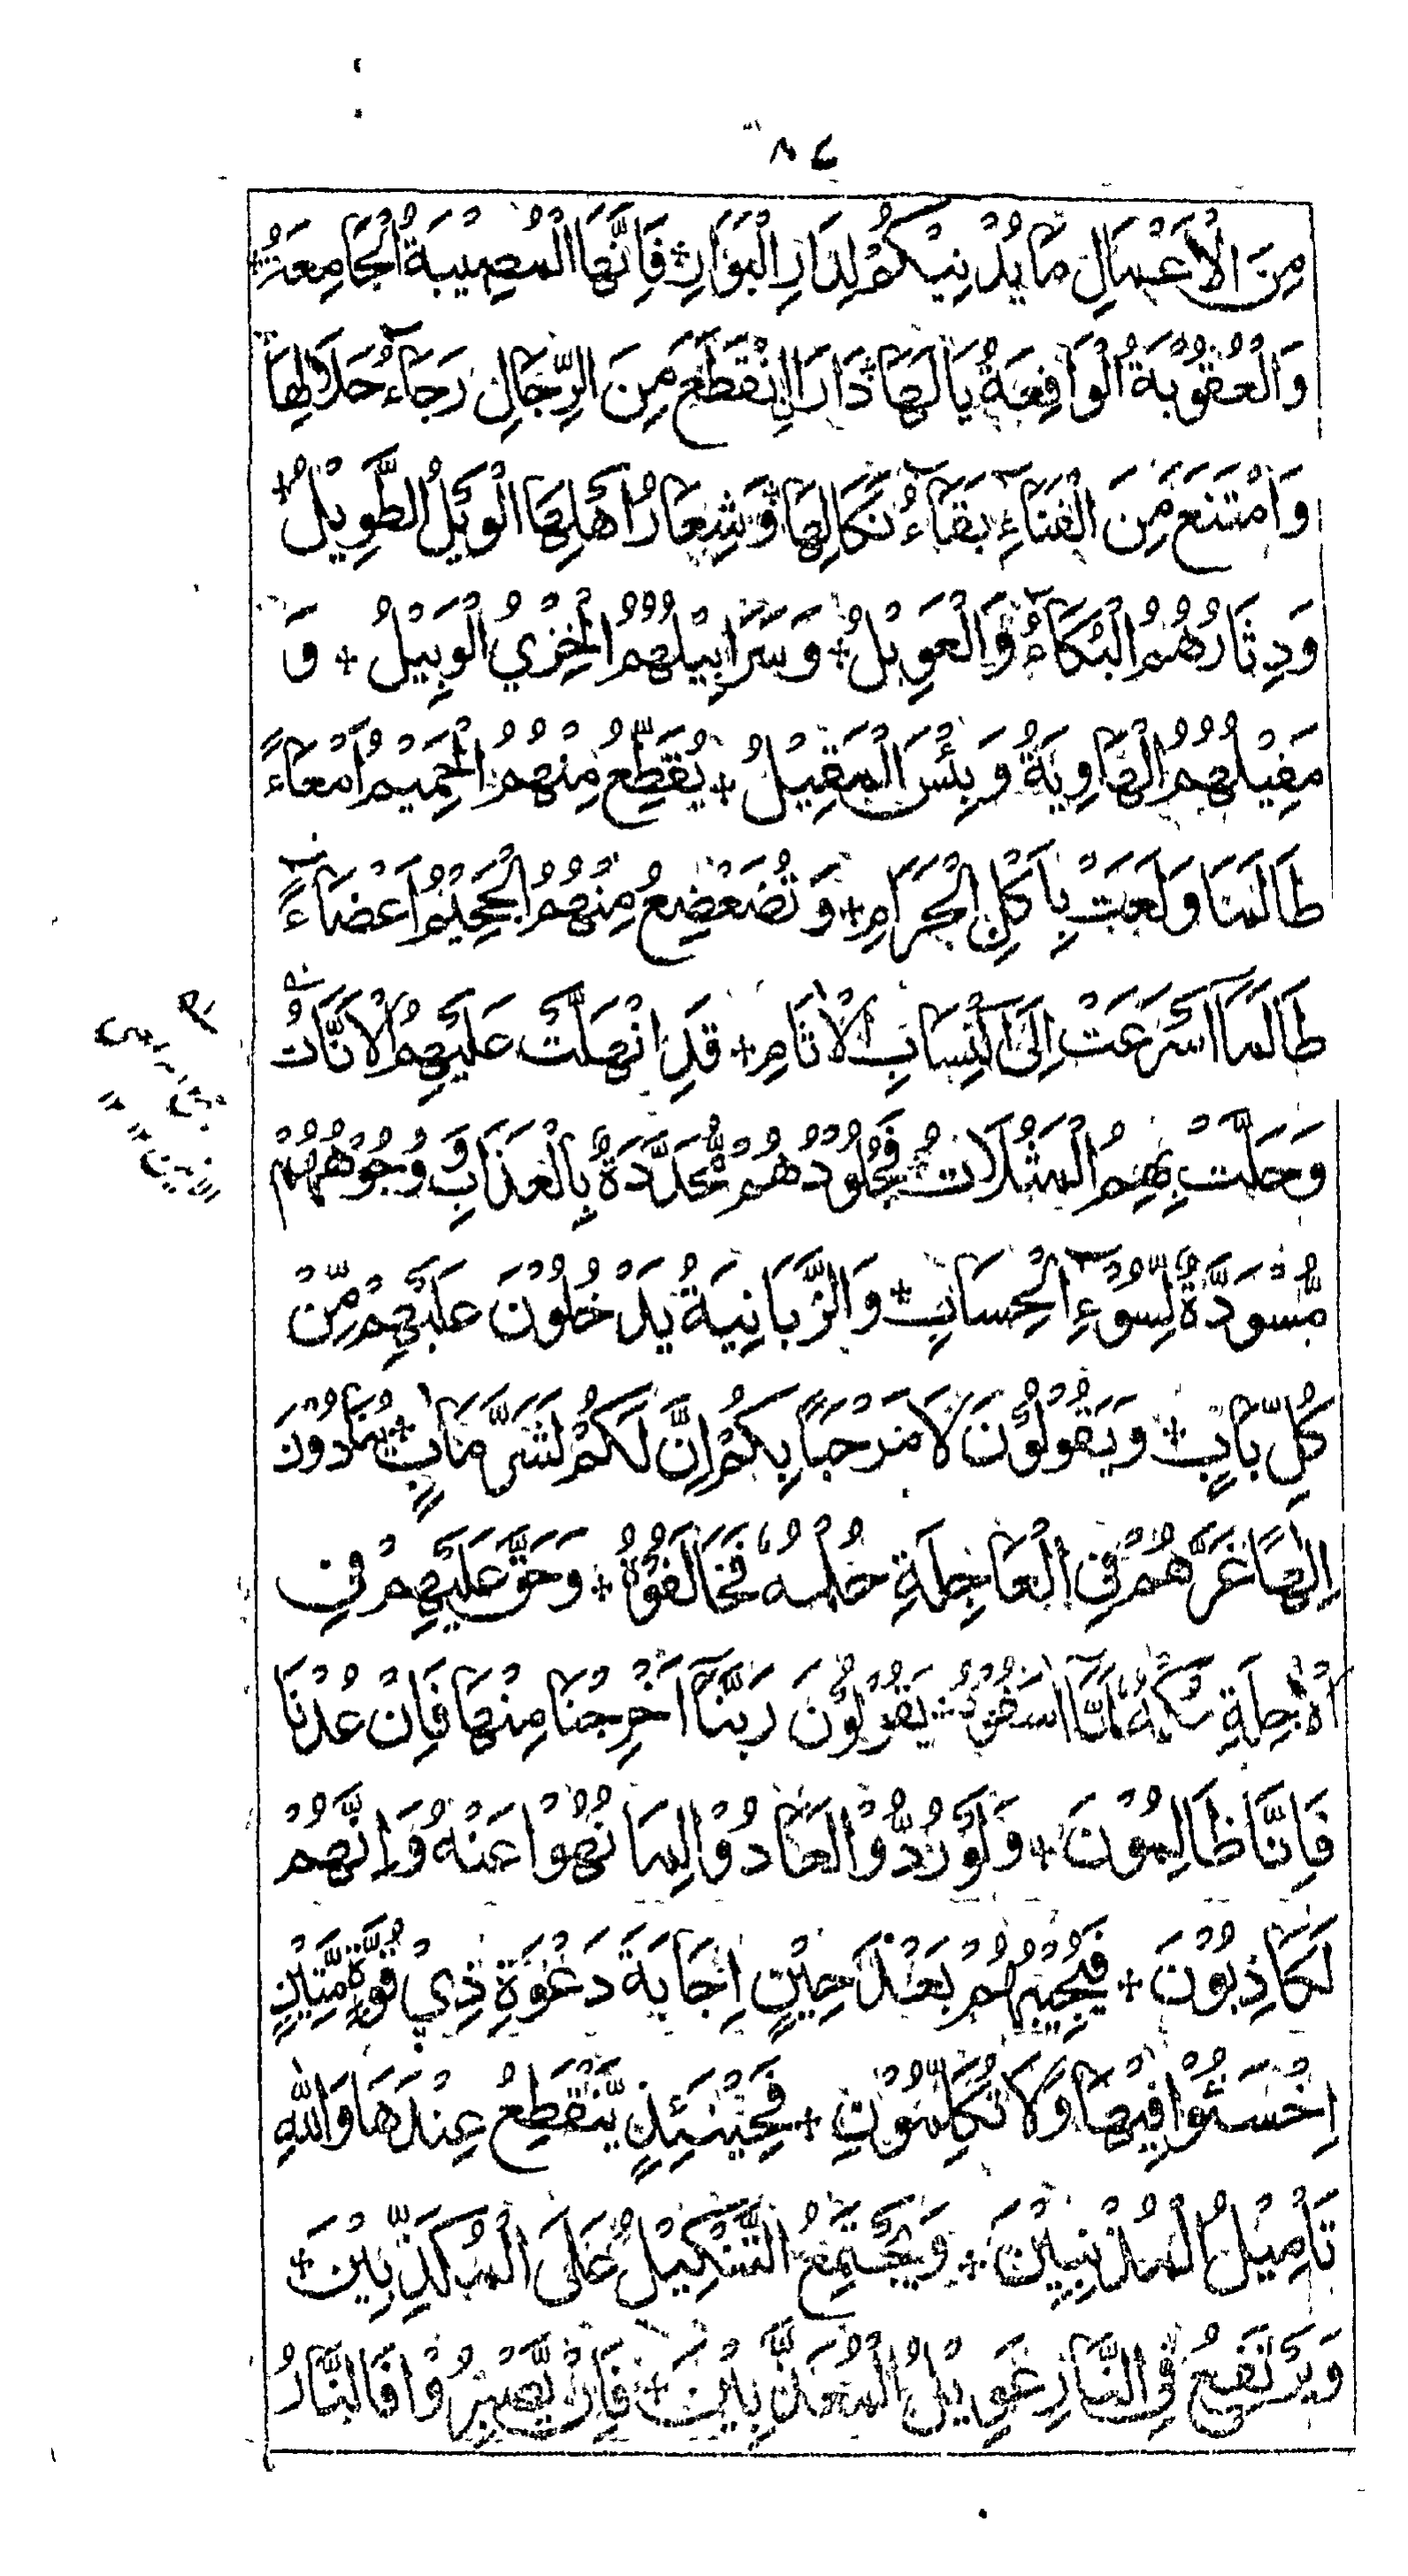 ٨٤
مِنَ الْاَعْمَالِ مَا يُدْنِيْكُمْ لِدَارِ الْبَوَارِ + فَاِنَّهَا الْمُصِيْبَةُ الْجَامِعَةُ +
وَالْعُقُوْبَةُ الْوَاقِعَةُ يَا لَهَا دَارَا اِنْقَطَعَ مِنَ الرِّجَالِ رَجَاءُ حَلَالِهَا
وَامْتَنَعَ مِنَ الْفَنَاءِ بَقَاءُ نَكَالِهَا + وَشِعَارُ اَهْلِهَا الْوَيْلُ الطَّوِيْلُ +
وَدِثَارُهُمُ الْبُكَاءُ وَالْعَوِيْلُ + وَسَرَابِيْلُهُمُ الْخِزْيُ الْوَبِيْلُ + وَ
مَقِيْلُهُمُ الْهَاوِيَةُ وَبِئْسَ الْمَقِيْلُ + يُقَطِّعُ مِنْهُمُ الْحَمِيْمُ اَمْعَاءً
طَالَمَا وَلَعَتْ بِاَكْلِ الْحَرَامِ + وَتُضَعْضِعُ مِنْهُمُ الْجَحِيْمُ اَعْضَاءً
طَالَمَا اَسْرَعَتْ اِلَى اكْتِسَابِ الْاٰثَامِ + قَدِ انْهَلَّتْ عَلَيْهِمُ الْاَنَّاتُ
وَحَلَّتْ بِهِمُ الْمَثُلَاتُ + فَجُلُوْدُهُمْ مُّخَدَّدَةٌ بِالْعَذَابِ وَوُجُوْهُهُمْ
مُّسْوَدَّةٌ لِّسُوْءِ الْحِسَابِ + وَالزَّبَانِيَةُ يَدْخُلُوْنَ عَلَيْهِمْ مِّنْ
كُلِّ بَابٍ + وَيَقُوْلُوْنَ لَا مَرْحَبًا بِكُمْ اِنَّ لَكُمْ لَشَرَّ مَاٰبٍ + يُنَادُوْنَ
اِلٰهًا غَرَّهُمْ فِي الْعَاجِلَةِ حُلْمُهٗ فَخَالَفُوْهُ + وَحَقَّ عَلَيْهِمْ فِي
الْاٰجِلَةِ حُكْمُهٗ لَمَّا اٰسَفُوْهُ + يَقُوْلُوْنَ رَبَّنَا اَخْرِجْنَا مِنْهَا فَاِنْ عُدْنَا
فَاِنَّا ظَالِمُوْنَ + وَلَوْ رُدُّوْا لَعَادُوْا لِمَا نُهُوْا عَنْهُ وَاِنَّهُمْ
لَكَاذِبُوْنَ + فَيُجِيْبُهُمْ بَعْدَ حِيْنٍ اِجَابَةَ دَعْوَةِ ذِيْ قُوَّةٍ مَّتِيْنٍ
اِخْسَئُوْا فِيْهَا وَلَا تُكَلِّمُوْنِ + فَحِيْنَئِذٍ يَّنْقَطِعُ عِنْدَهَا وَاللّٰهِ
تَاْمِيْلُ الْمُذْنِبِيْنَ + وَيَجْتَمِعُ التَّنْكِيْلُ عَلَى الْمُكَذِّبِيْنَ +
وَيَرْتَفِعُ فِي النَّارِ عَوِيْلُ الْمُعَذَّبِيْنَ + فَاِنْ يَّصْبِرُوْا فَالنَّارُ